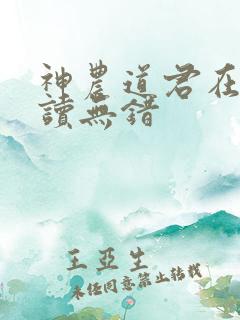 神農道君在
讀無錯
王亞生
未經同意禁止轉載